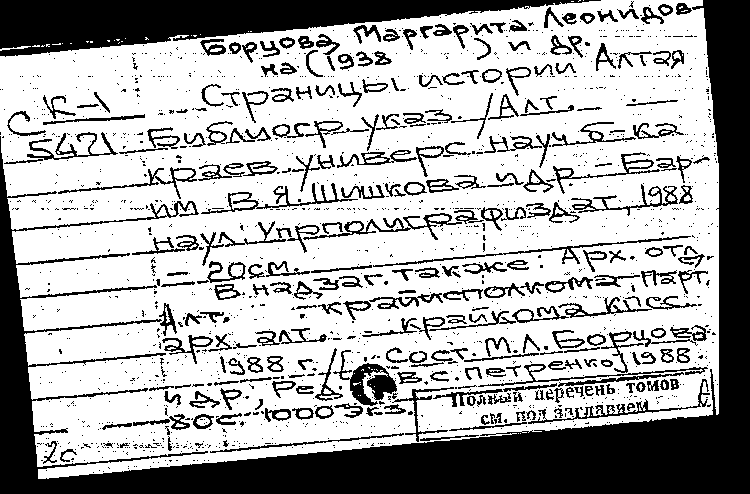 Борцова, Маргарита Леонидов-
на (1938 ) и др.
Страницы истории Алтая
С К-1
5471
Библиогр. указ. / Алт.
краев. универс. науч. б-ка
им. В.Я. Шишкова и др. - Бар-
наул: Упрполиграфиздат, 1988
- 20см.
В надзаг. также: Арх. отд.
Алт. крайисполкома, Парт.
арх. алт. крайкома КПСС.
1988 г. / [Сост. М.Л. Борцова
и др., Ред. В.С. Петренко] 1988.
80с. 1000 экз.
Полный перечень томов
см. под заглавием
2с